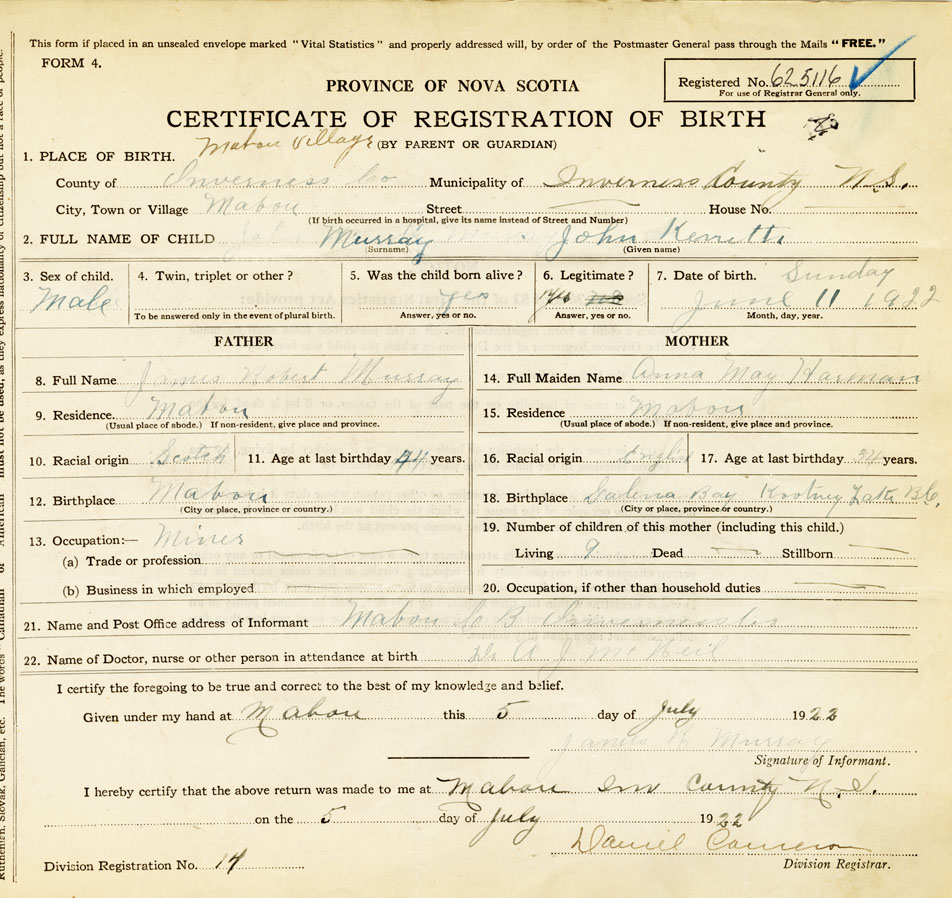 This form if placed in an unsealed envelope marked "Vital Statistics" and properly addressed will, by order of the Postmaster General pass through the Mails "FREE."
FORM 4.
Registered No. 625116
For use of Registrar General only.
PROVINCE OF NOVA SCOTIA
CERTIFICATE OF REGISTRATION OF BIRTH
Mabou Village (BY PARENT OR GUARDIAN)
1. PLACE OF BIRTH.
County of Inverness Co Municipality of Inverness County N.S.
City, Town or Village Mabou Street House No.
(If birth occurred in a hospital, give its name instead of Street and Number)
2. FULL NAME OF CHILD Murray John
(Surname) (Given name)
3. Sex of child. 4. Twin, triplet or other? 5. Was the child born alive? 6. Legitimate? 7. Date of birth. Sunday
Male yes yes June 11 1922
To be answered only in the event of plural birth. Answer, yes or no. Answer, yes or no. Month, day, year.
FATHER MOTHER
8. Full Name James Robert Murray 14. Full Maiden Name Anna May Harman
9. Residence. Mabou 15. Residence Mabou
(Usual place of abode.) If non-resident, give place and province. (Usual place of abode.) If non-resident, give place and province.
10. Racial origin Scotch 11. Age at last birthday 44 years. 16. Racial origin English 17. Age at last birthday 34 years.
12. Birthplace Mabou 18. Birthplace Galena Bay Kootney Lake B.C.
(City or place, province or country.) (City or place, province or country.)
13. Occupation:— Miner 19. Number of children of this mother (including this child.)
(a) Trade or profession Living 9 Dead Stillborn
(b) Business in which employed 20. Occupation, if other than household duties
21. Name and Post Office address of Informant Mabou C B Inverness Co
22. Name of Doctor, nurse or other person in attendance at birth Dr A J McNeil
I certify the foregoing to be true and correct to the best of my knowledge and belief.
Given under my hand at Mabou this 5 day of July 1922
James R Murray
Signature of Informant.
I hereby certify that the above return was made to me at Mabou Inv County N.S.
on the 5 day of July 1922
Daniel Cameron
Division Registration No. 14 Division Registrar.